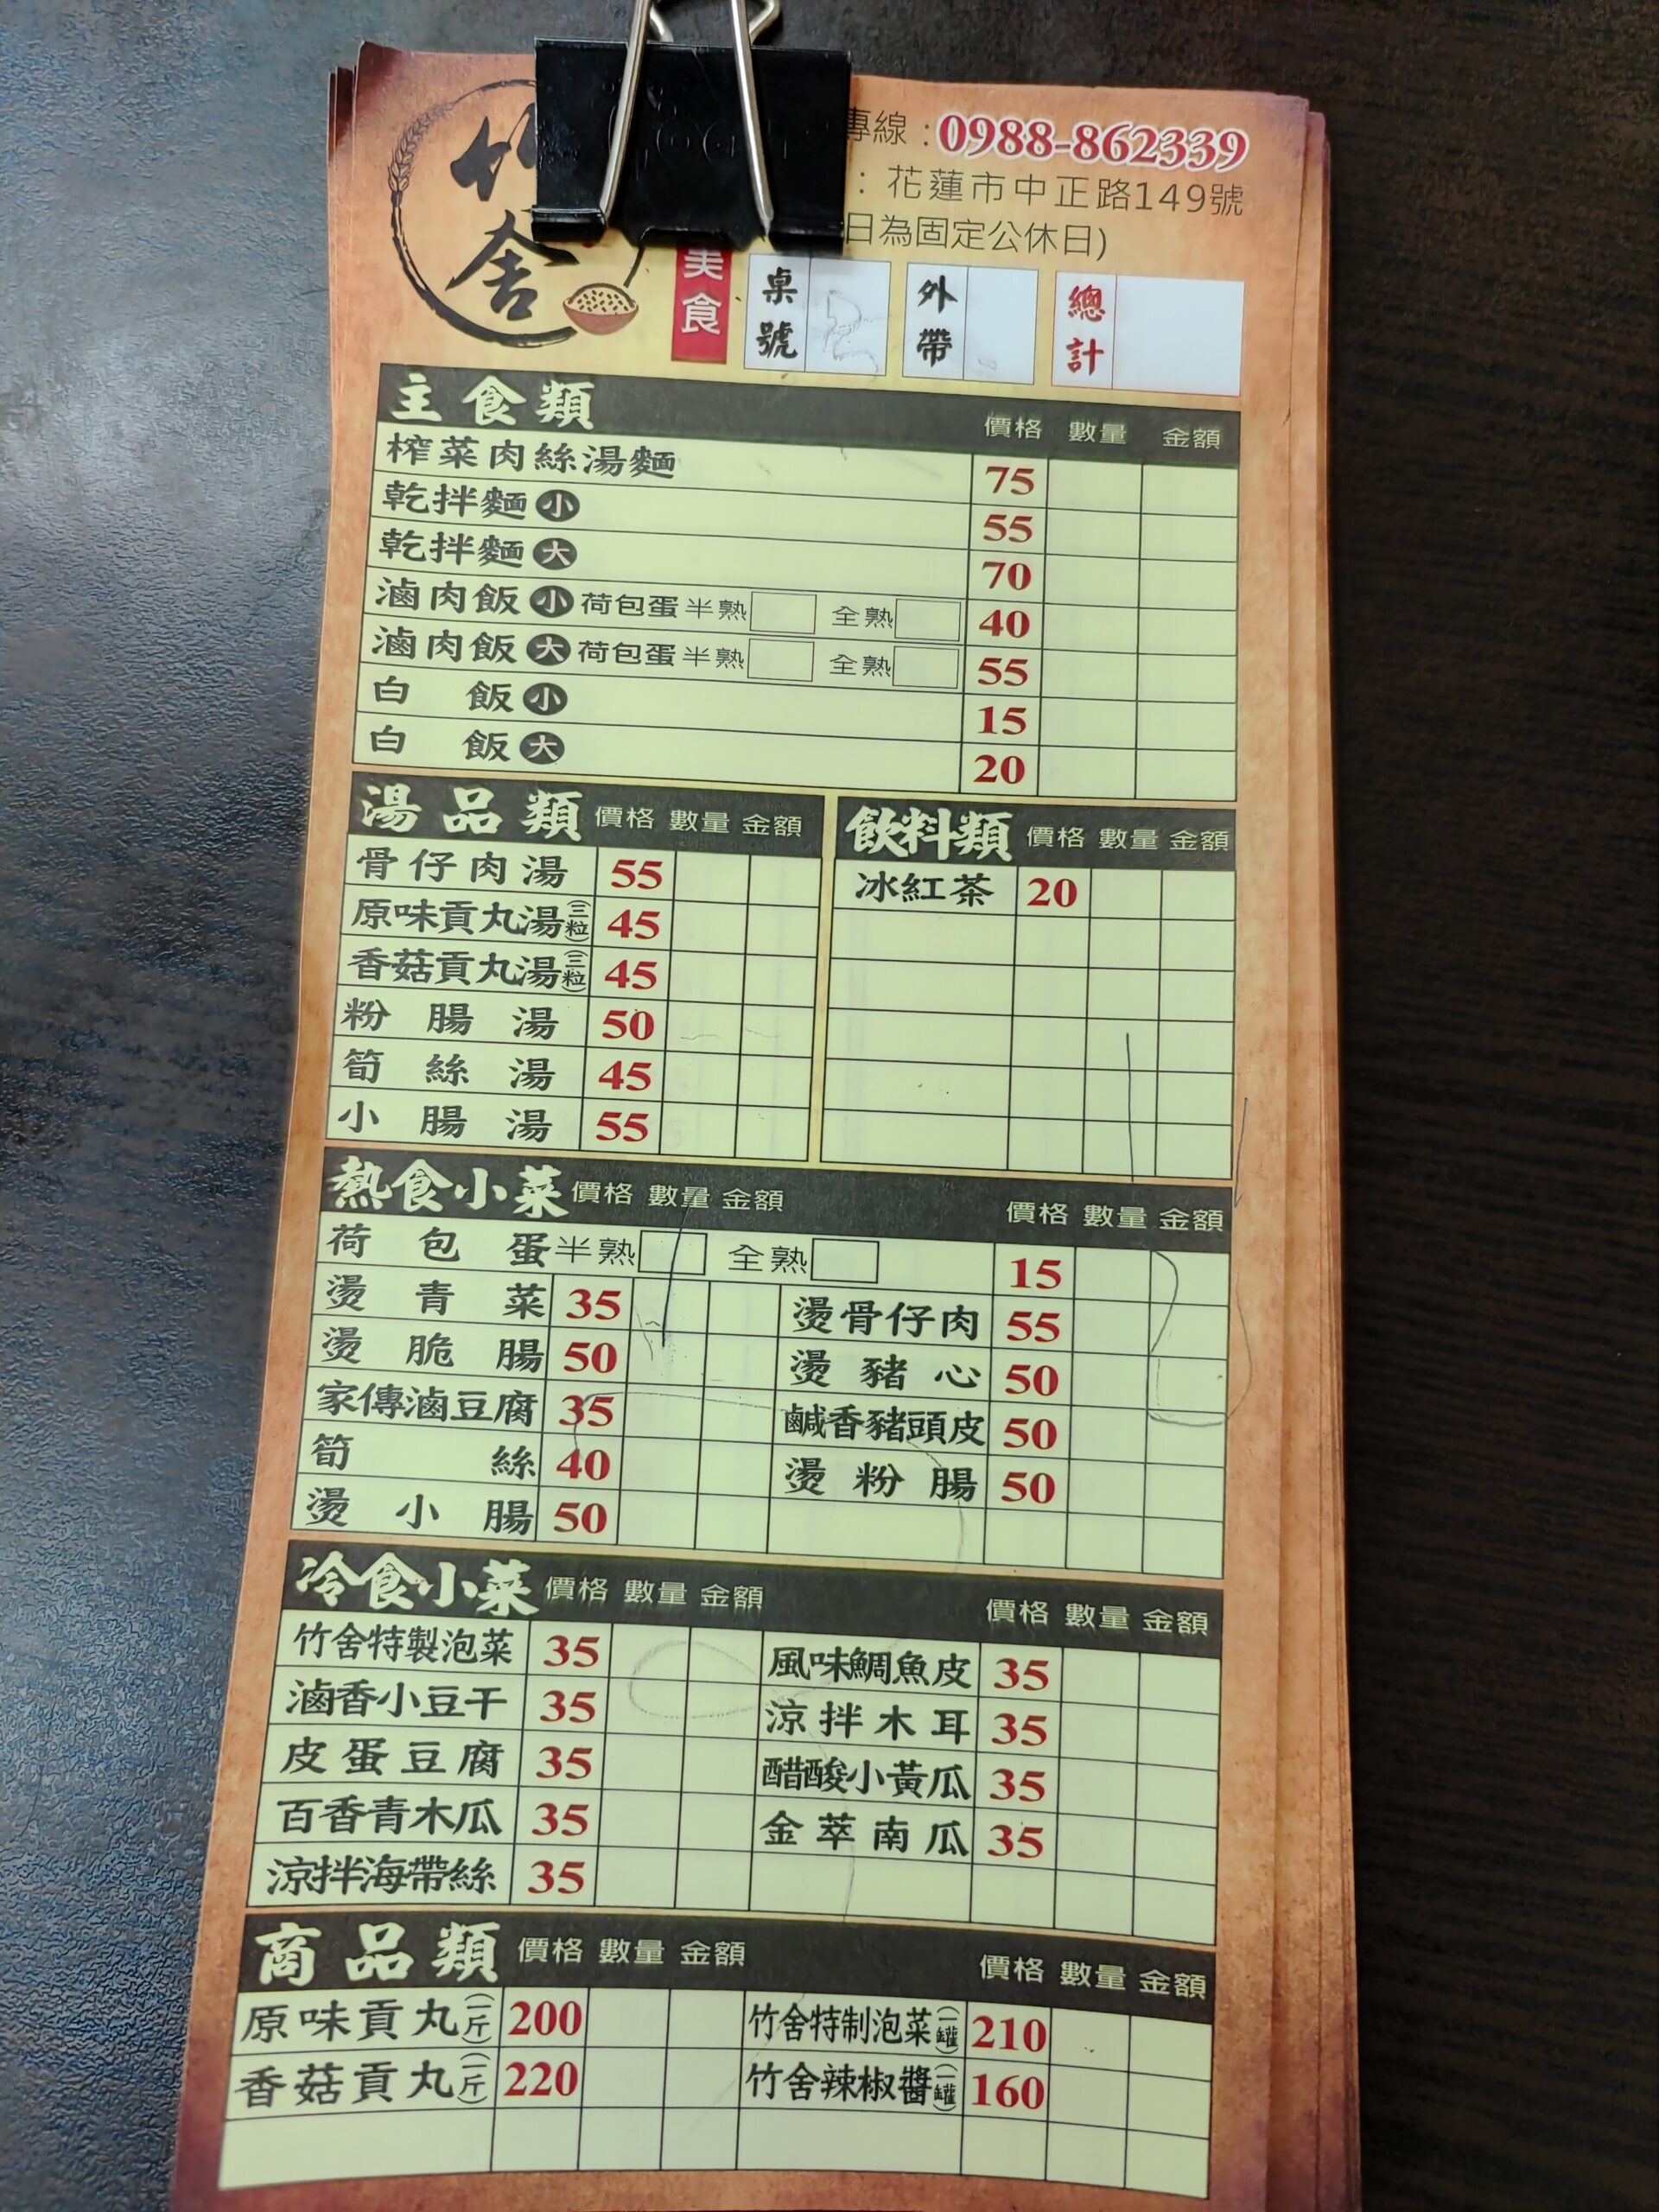 舍
專線：0988-862339
：花蓮市中正路149號
日為固定公休日)
美食
桌號 外帶 總計
主食類 價格 數量 金額
榨菜肉絲湯麵 75
乾拌麵 小 55
乾拌麵 大 70
滷肉飯 小 荷包蛋 半熟 全熟 40
滷肉飯 大 荷包蛋 半熟 全熟 55
白飯 小 15
白飯 大 20
湯品類 價格 數量 金額
骨仔肉湯 55
原味貢丸湯(三粒) 45
香菇貢丸湯(三粒) 45
粉腸湯 50
筍絲湯 45
小腸湯 55
飲料類 價格 數量 金額
冰紅茶 20
熱食小菜 價格 數量 金額 價格 數量 金額
荷包蛋 半熟 全熟 15
燙青菜 35 燙骨仔肉 55
燙脆腸 50 燙豬心 50
家傳滷豆腐 35 鹹香豬頭皮 50
筍絲 40 燙粉腸 50
燙小腸 50
冷食小菜 價格 數量 金額 價格 數量 金額
竹舍特製泡菜 35 風味鯛魚皮 35
滷香小豆干 35 涼拌木耳 35
皮蛋豆腐 35 醋酸小黃瓜 35
百香青木瓜 35 金萃南瓜 35
涼拌海帶絲 35
商品類 價格 數量 金額 價格 數量 金額
原味貢丸(一斤) 200 竹舍特制泡菜(一罐) 210
香菇貢丸(一斤) 220 竹舍辣椒醬(一罐) 160